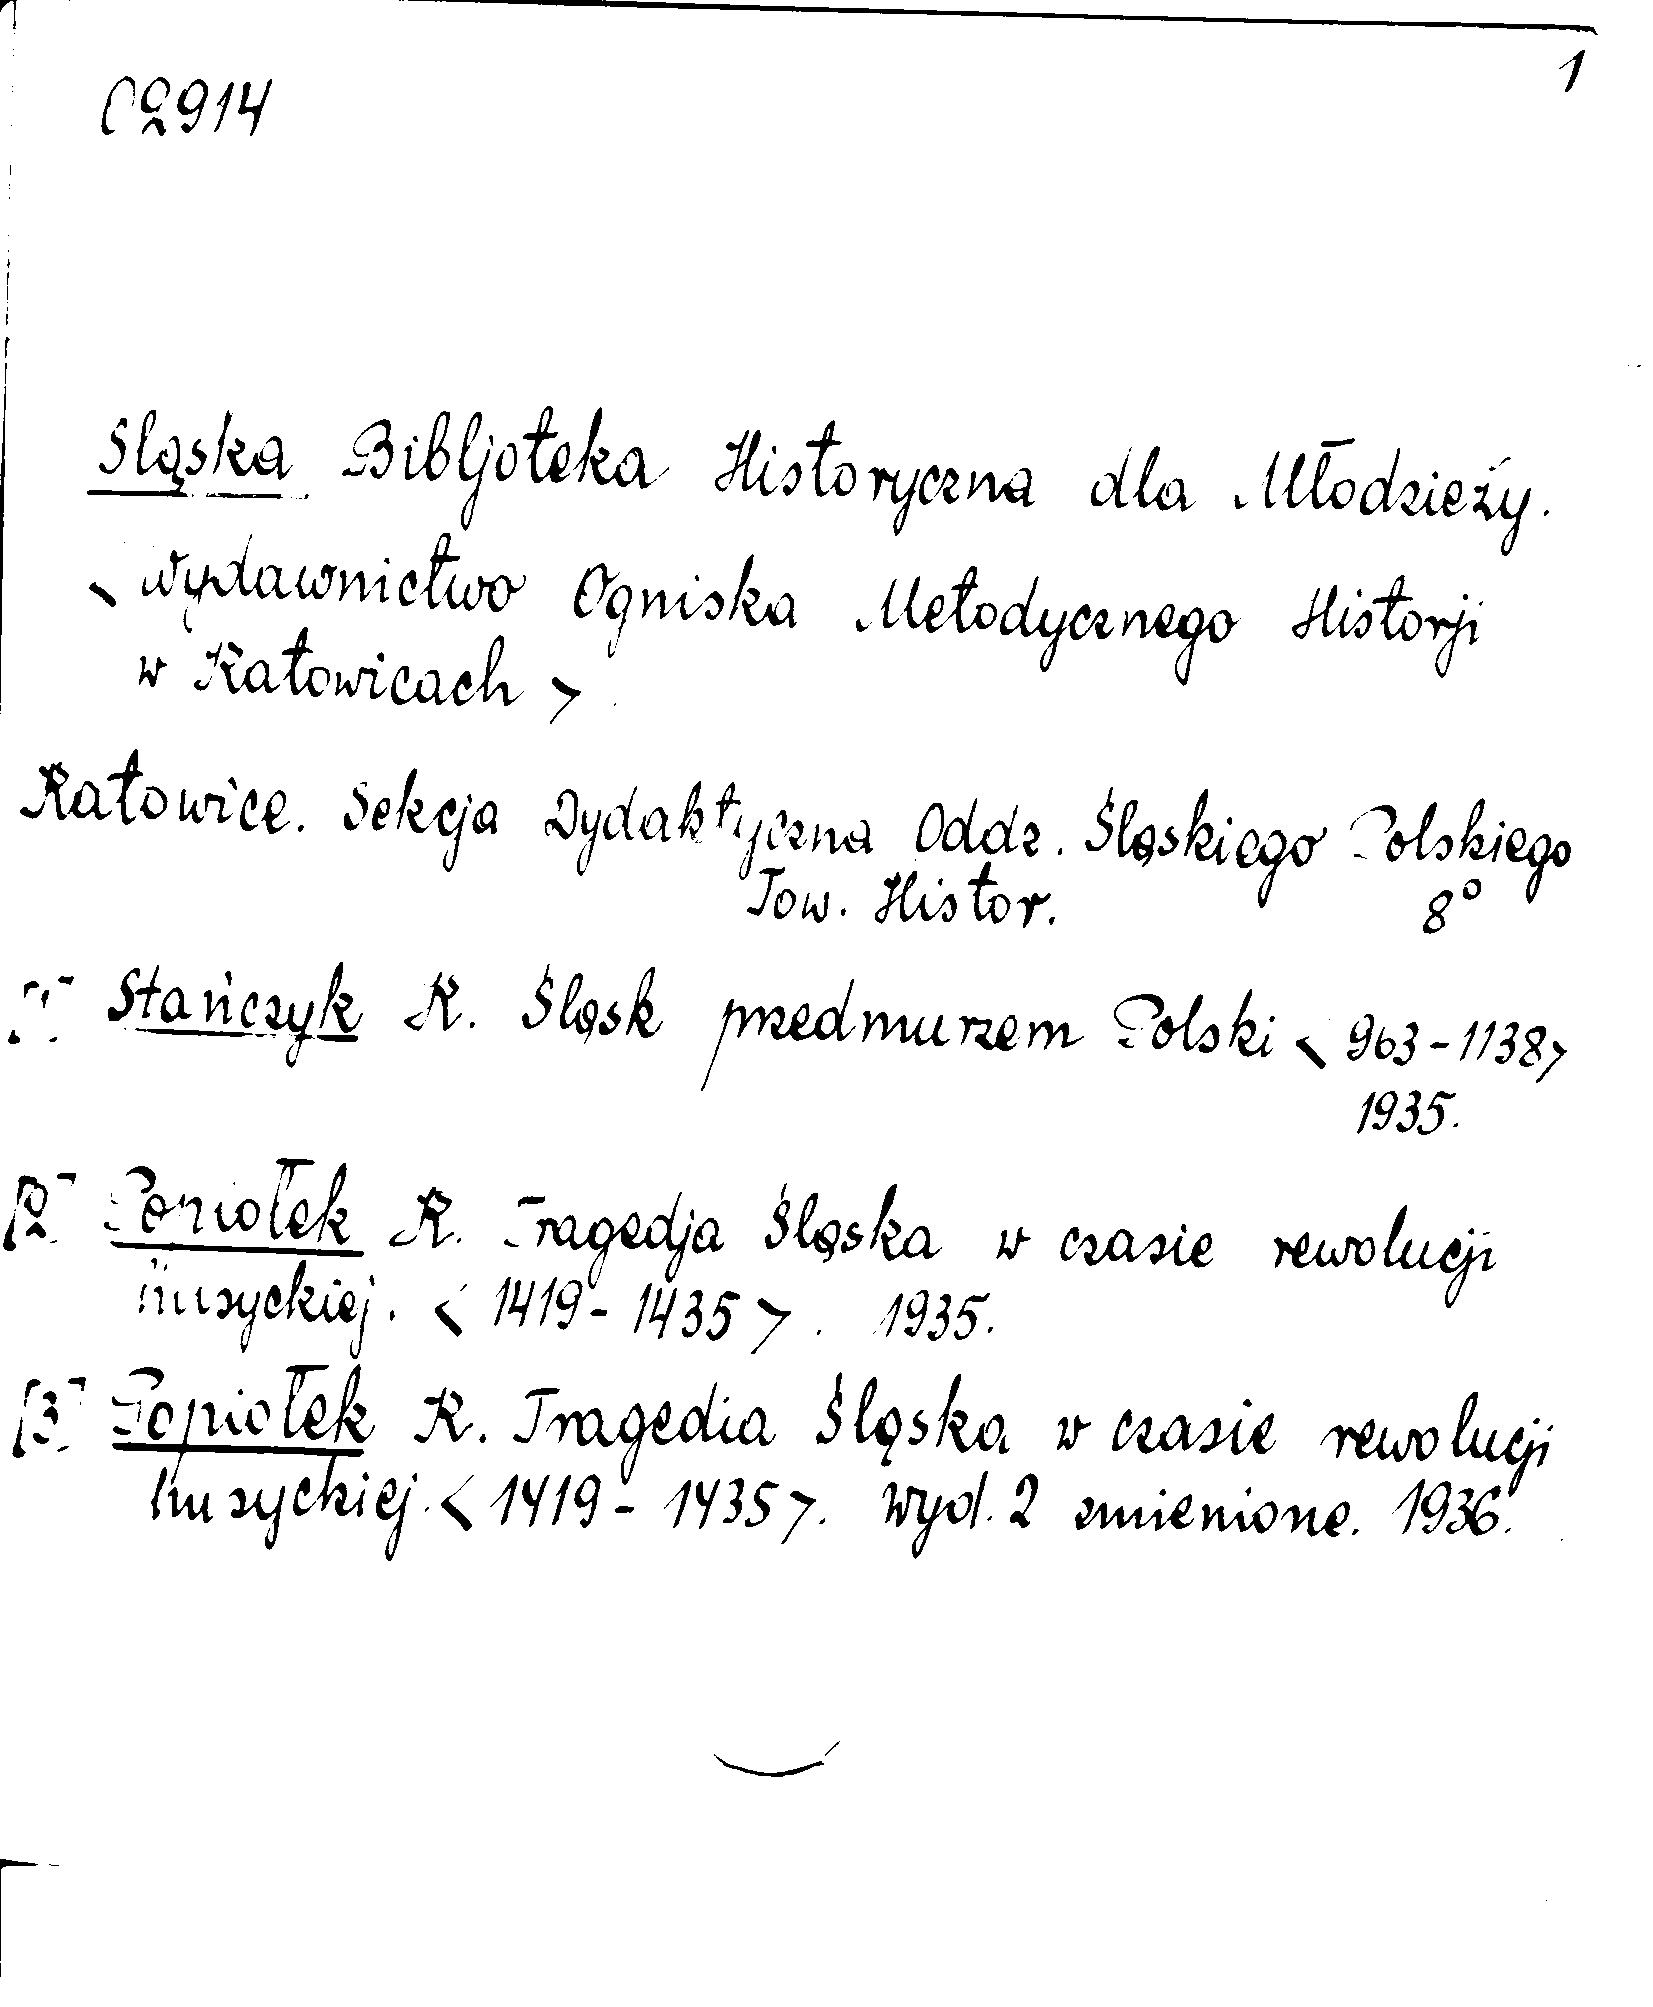 1
02914
Sląska Bibljoteka Historyczna dla Młodzieży.
< Wydawnictwo Ogniska Metodycznego Historji
w Katowicach >
Katowice. Sekcja Dydaktyczna Oddz. Śląskiego Polskiego
Tow. Histor. 8°
[1] Stańczyk K. Śląsk przedmurzem Polski < 963-1138>
1935.
[2] Popiołek K. Tragedja Śląska w czasie rewolucji
husyckiej. < 1419 - 1435 >. 1935.
[3] Popiołek K. Tragedia Śląska w czasie rewolucji
husyckiej. < 1419 - 1435 >. Wyd. 2 zmienione. 1936.